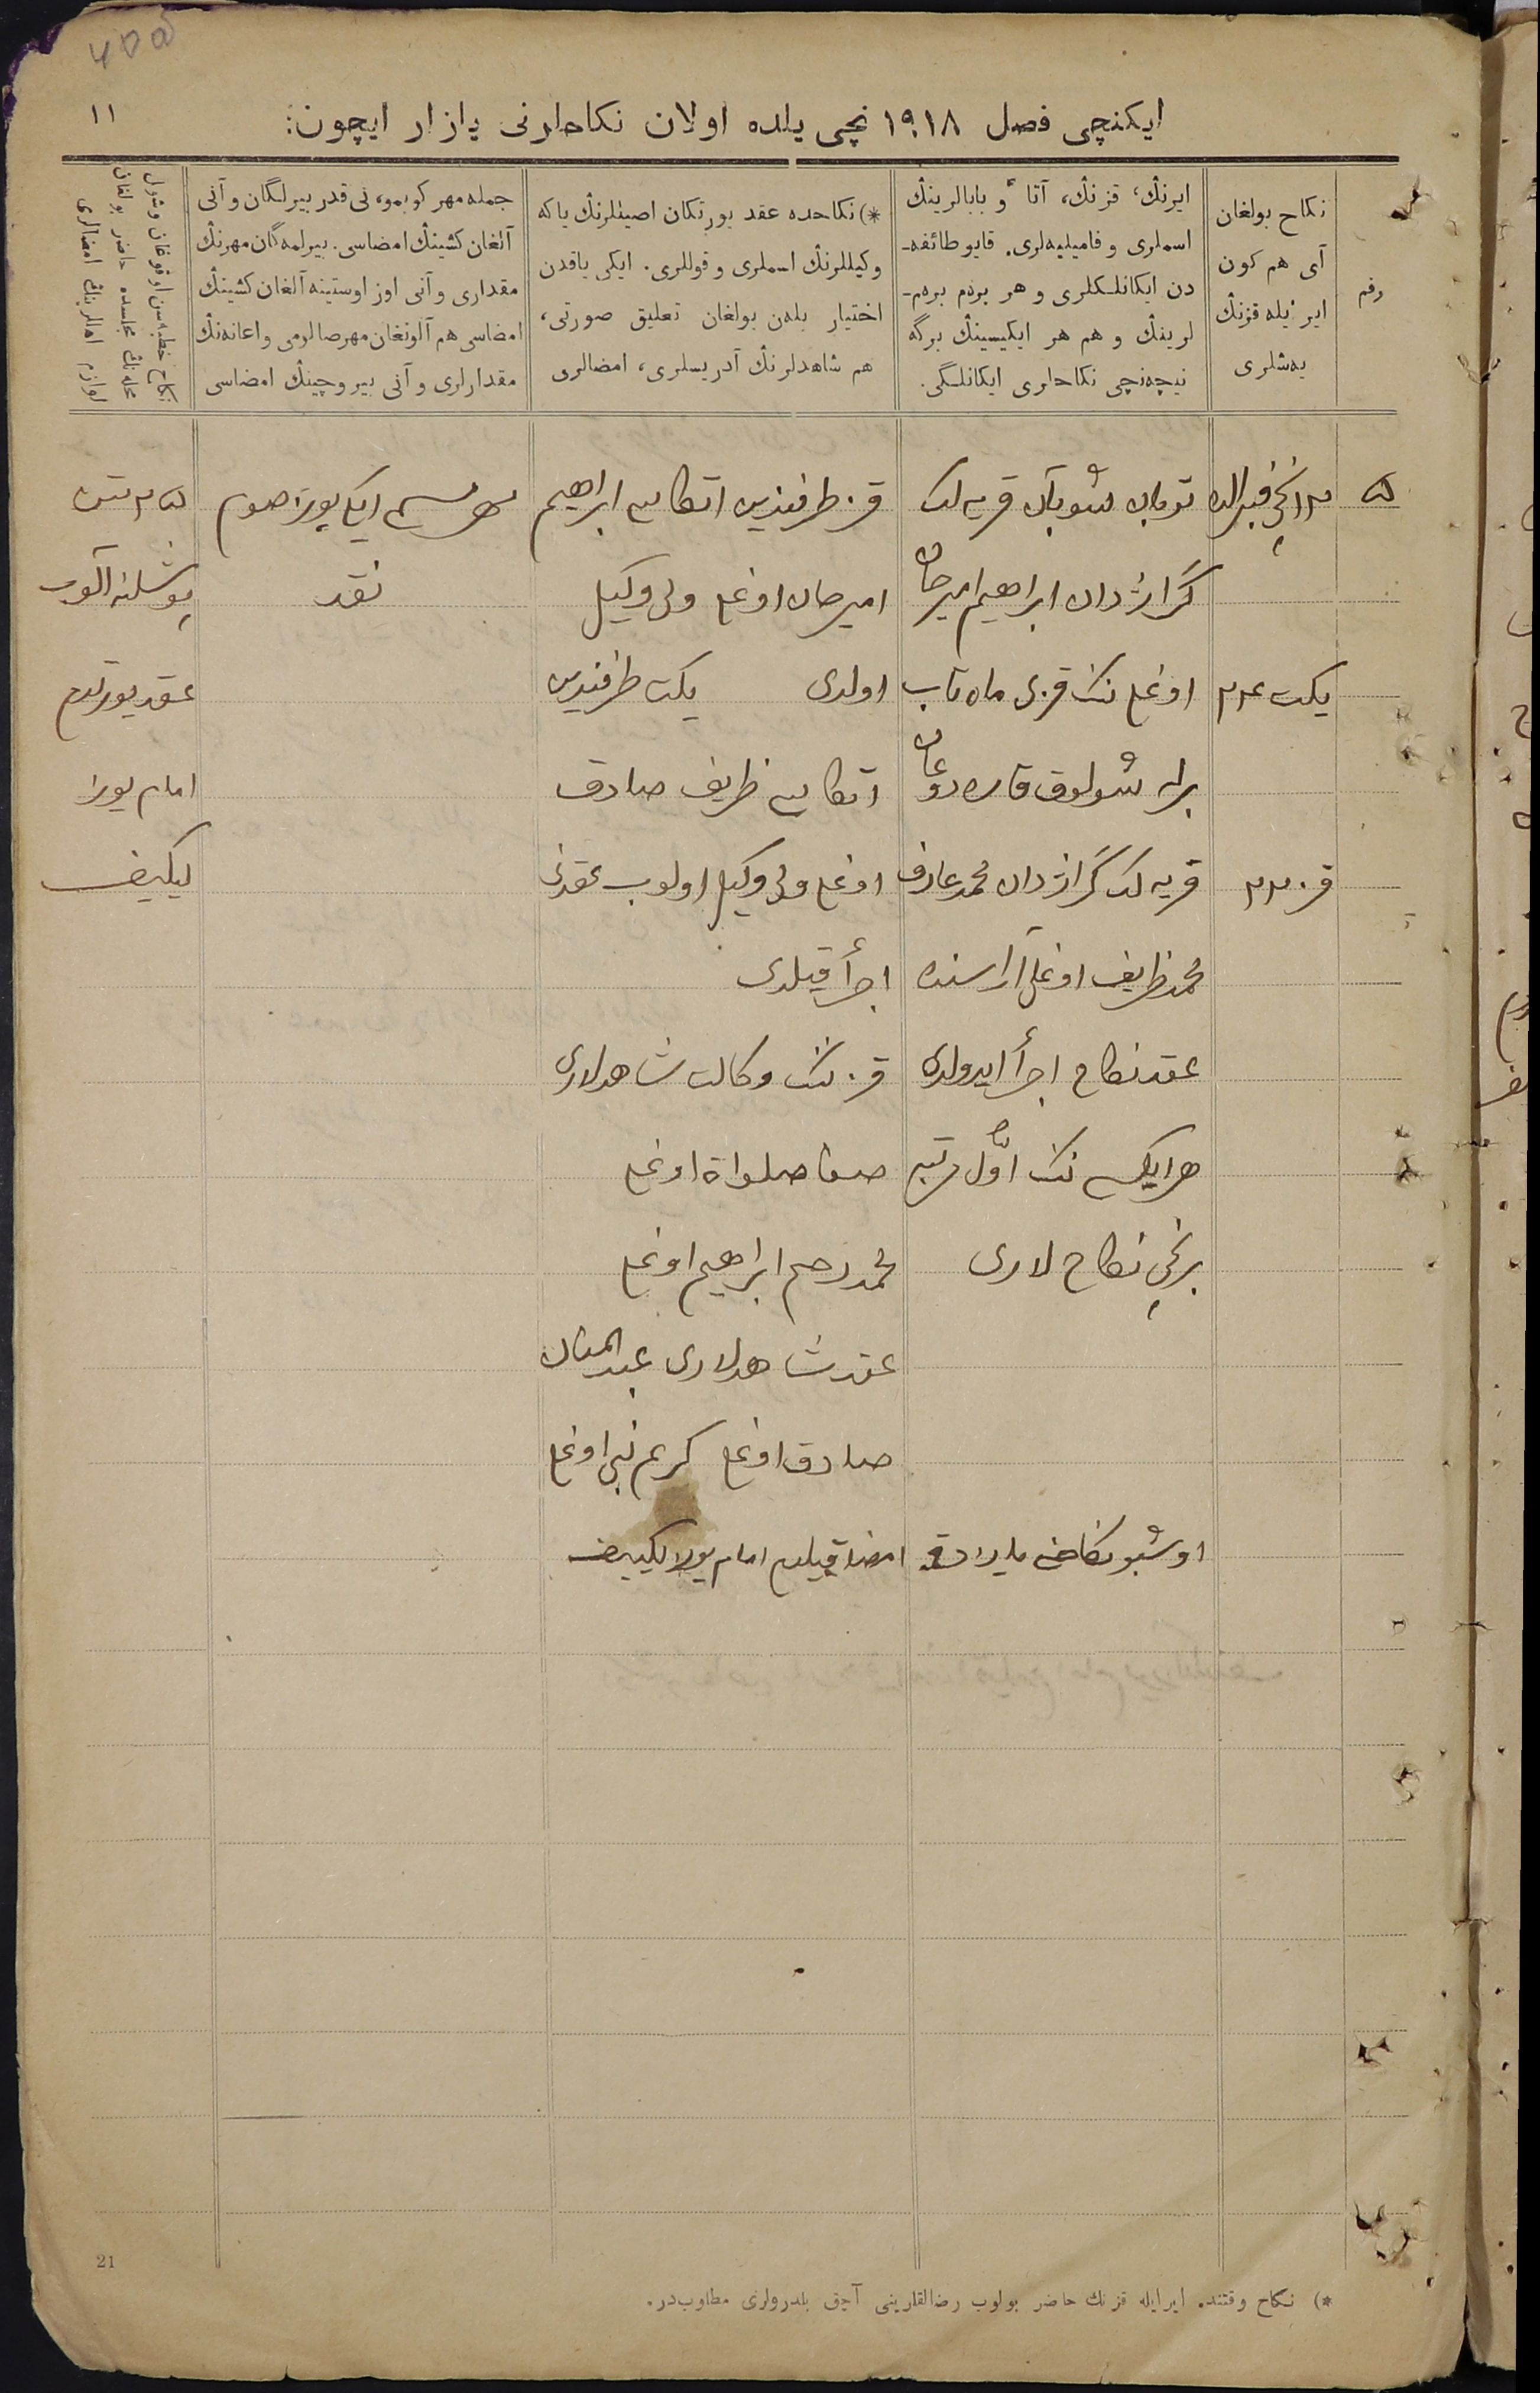 ایکنچی فصل ۱۹۱۸ نچی یلده اولان نکاحلرنی یازار ایچون:
۱۱
رقم
نکاح بولغان
آی هم کون
ایر ئیله قزنڭ
یه‌شلری
ایرنڭ، قزنڭ، آتا و بابالرینڭ
اسملری و فامیلیه‌لری. قایو طائفه‌-
دن ایکانلکلری و هر بردم بردم-
لرینڭ و هم هر ایکیسینڭ برگه
نیچه‌نچی نکاحلری ایکانلگی.
*) نکاحده عقد یورتکان اصیللرنڭ یا که
وکیللرنڭ اسملری و قوللری. ایکی یاقدن
اختیار بله‌ن بولغان تعلیق صورتی،
هم شاهدلرنڭ آدریسلری، امضالری
جمله مهر کوبمو، نی قدر بیرلگان و آنی
آلغان کشینڭ امضاسی. بیرلمه‌گان مهرنڭ
مقداری و آنی اوز اوستینه آلغان کشینڭ
امضاسی هم آلونغان مهر صالرمی و اعانه‌نڭ
مقدارلری و آنی بیروچینڭ امضاسی
نکاح خطبه‌سن اوقوغان و شول
محله‌نڭ مجلسده حاضر بولغان
لوازم اهللرینڭ امضالری
۵
۱۳نچی فبرالده
یکت ۲۳
قز ۲۲
تومان شوبان قریه لک
گراژدان ابراهیم امیرجان
اوغلی ننک قزی ماه تاب
برله شولوق
قریه لک گراژدان محمدعارف
محمدظریف اوغلی آراسنده
عقد نکاح اجرأ ایدولدی
هر ایکی سی ننک اوّل مرتبه
برنچی نکاح لاری
قز طرفندین اتکاسی ابراهیم
امیرجان اوغلی ولی وکیل
اولدی یکت طرفندین
اتکاسی ظریف صادق
اوغلی ولی وکیل اولوب عقدنی
اجرأ قیلدی
قز ننک وکالت شاهدلاری
صفا صلواة اوغلی
محمدرحیم ابراهیم اوغلی
عقد شاهدلاری عبدالمنان
صادق اوغلی کریم نبی اوغلی
مهر مسمی ایکی یوز صوم
نقد
۲۵ تین
پوشلنه آلوب
عقد یورتدم
امام
اوشبو نکاحنی یازدقده امضا قیلدم امام
*) نکاح وقتنده ایر ایله قزنڭ حاضر بولوب رضالقلرینی آچق بلدرولری مطلوبدر.
21